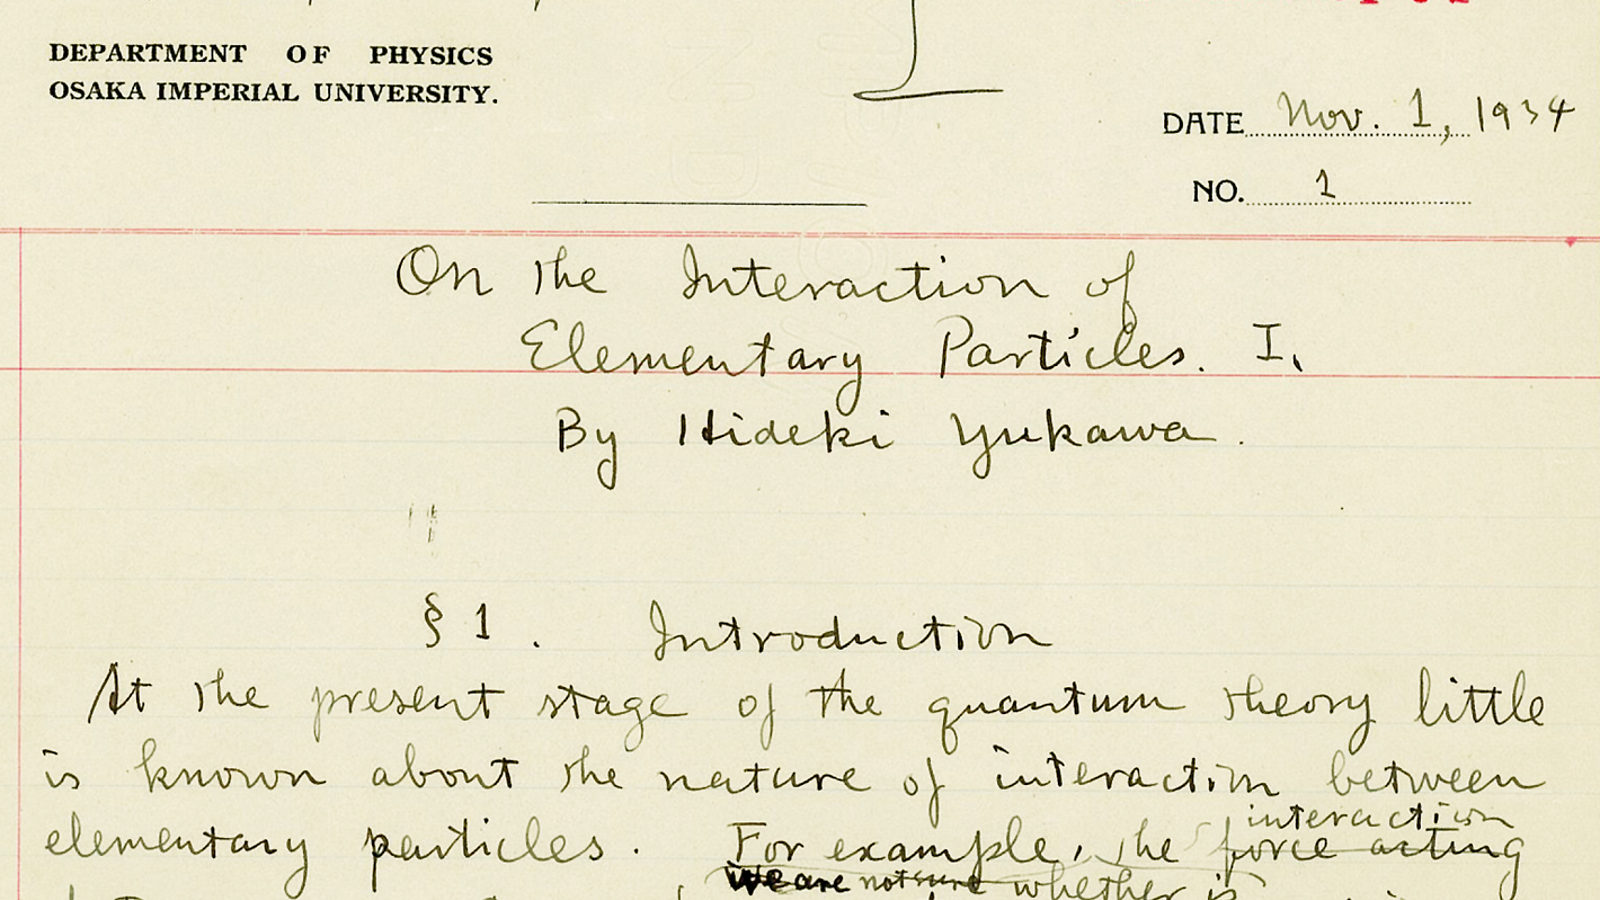 DEPARTMENT OF PHYSICS
OSAKA IMPERIAL UNIVERSITY.
DATE Nov. 1, 1934
NO. 1
On the Interaction of
Elementary Particles. I.
By Hideki Yukawa.
§ 1. Introduction
At the present stage of the quantum theory little
is known about the nature of interaction between
interaction
elementary particles. For example, the force acting
We are not sure whether is